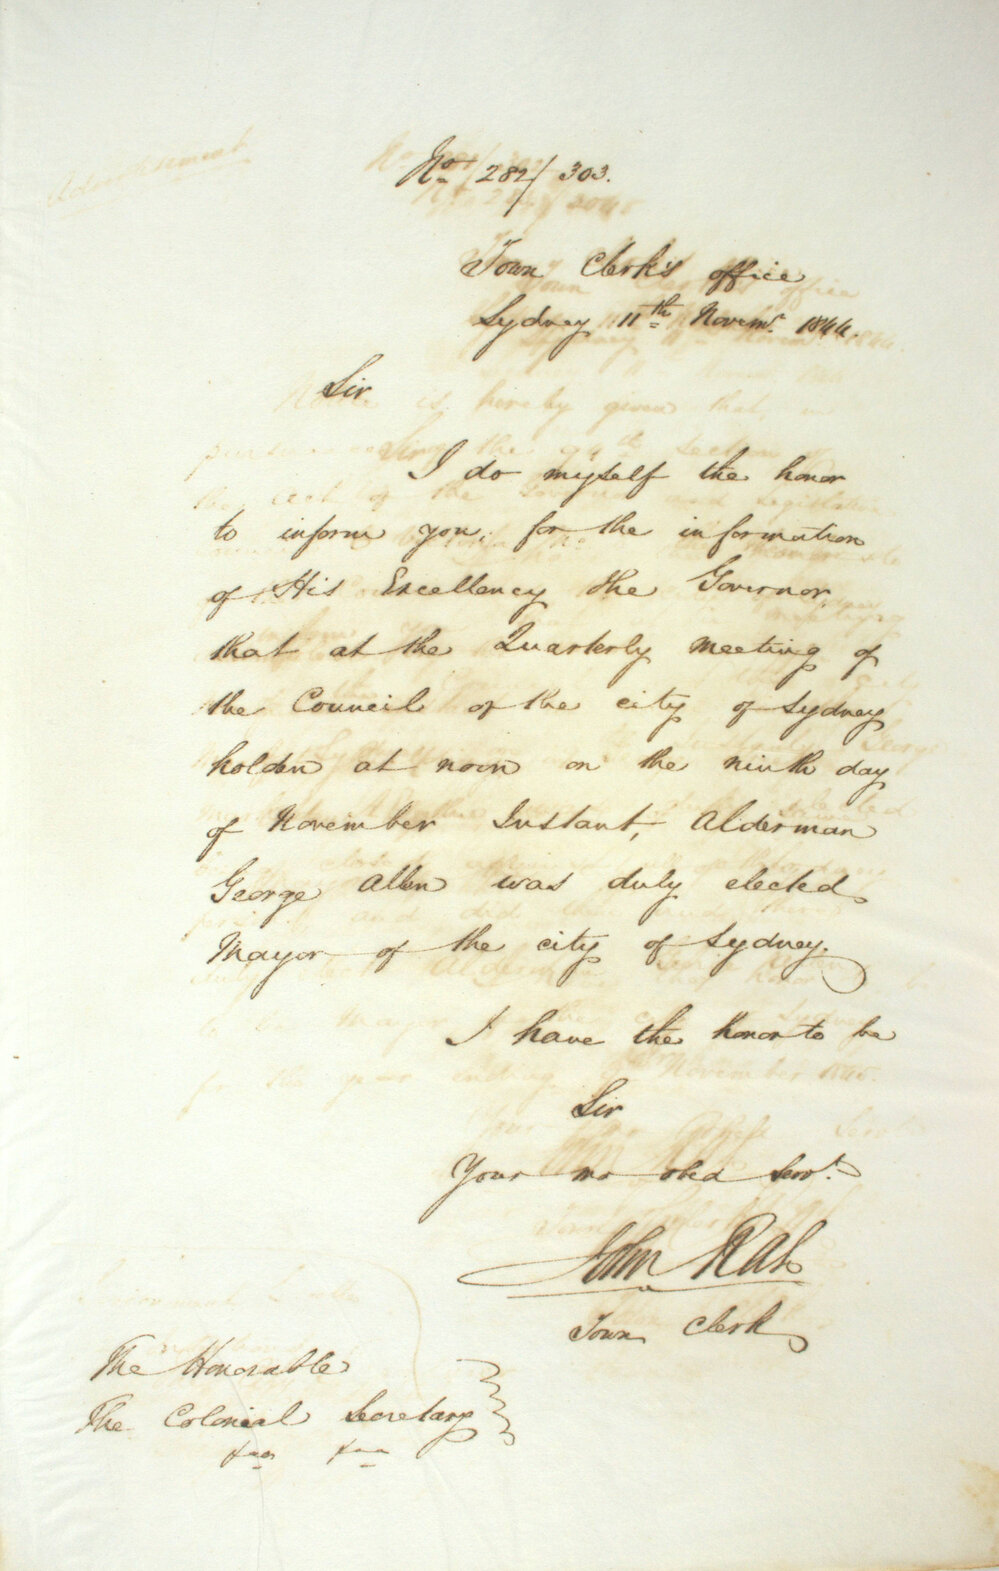 No. 282/303.
Town Clerk's office
Sydney 11th Novemr. 1844.
Sir
I do myself the honor
to inform you, for the information
of His Excellency the Governor,
that at the Quarterly meeting of
the Council of the city of Sydney
holden at noon on the ninth day
of November Instant, Alderman
George Allen was duly elected
Mayor of the city of Sydney.
I have the honor to be
Sir
Your mo obed Servt.
John Rae
Town Clerk
The Honorable
The Colonial Secretary